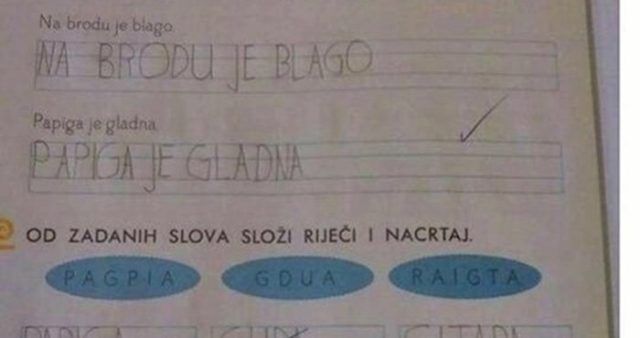 Na brodu je blago.
NA BRODU JE BLAGO
Papiga je gladna.
PAPIGA JE GLADNA
OD ZADANIH SLOVA SLOŽI RIJEČI I NACRTAJ.
PAGPIA GDUA RAIGTA
PAPIGA GITARA